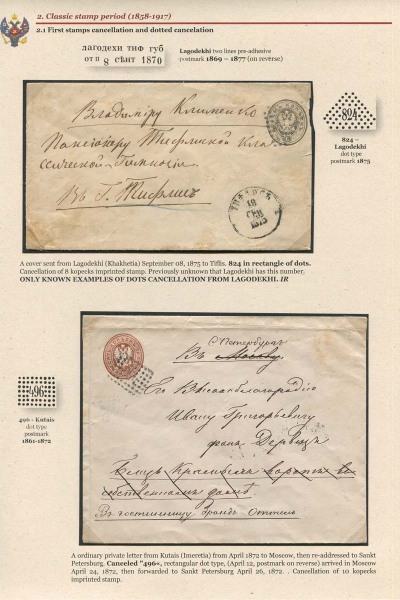 2. Classic stamp period (1858-1917)
2.1 First stamps cancellation and dotted cancelation
лагодехи тиф губ
отп 8 сѣнт 1870
Lagodekhi two lines pre-adhesive
postmark 1869 – 1877 (on reverse)
Владиміру Клименко
Пансіонеру Тифлиской Кла-
ссической Гимназіи
Въ Г. Тифлисъ
ТИФЛИСЪ
18
СЕН
1875
824
824 –
Lagodekhi
dot type
postmark 1875
A cover sent from Lagodekhi (Khakhetia) September 08, 1875 to Tiflis. 824 in rectangle of dots.
Cancellation of 8 kopecks imprinted stamp. Previously unknown that Lagodekhi has this number.
ONLY KNOWN EXAMPLES OF DOTS CANCELLATION FROM LAGODEKHI. IR
С Петербургъ
Въ Москву.
Его Высокоблагородію
Ивану Григорьевичу
фонъ Дервизъ
въ
домѣ
Въ гостинницу Грандъ Оттель
496
496 - Kutais
dot type
postmark
1861-1872
A ordinary private letter from Kutais (Imeretia) from April 1872 to Moscow, then re-addressed to Sankt
Petersburg. Canceled "496«, rectangular dot type, (April 12, postmark on reverse) arrived in Moscow
April 24, 1872, then forwarded to Sankt Petersburg April 26, 1872. . Cancellation of 10 kopecks
imprinted stamp.